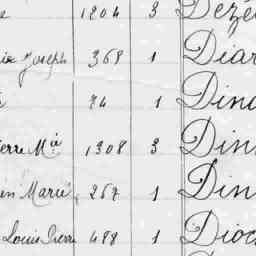 e 1204 3 Dezé
ie Joseph 369 1 Diar
74 1 Dina
ierre Mie 1308 3 Din
en Marie 257 1 Din
Louis Pierre 498 1 Dioc